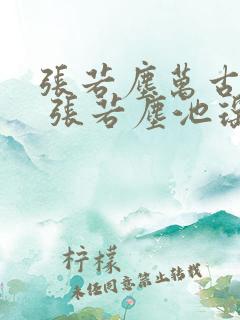 張若塵萬古
張若塵池
柠檬
未经同意禁止转载